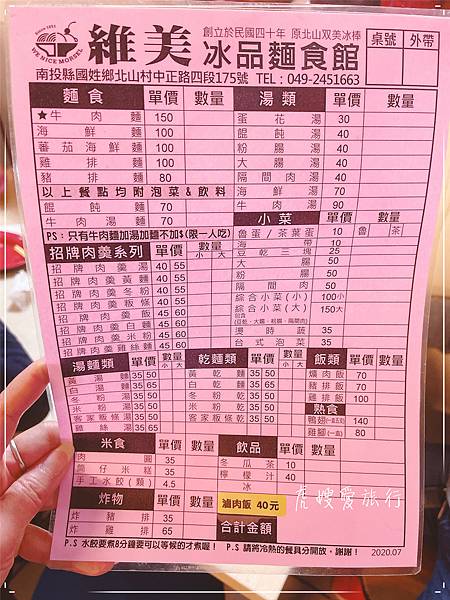 Since 1951
WE NICE MORSEL
維美 創立於民國四十年 原北山双美冰棒
冰品麵食館
桌號 外帶
南投縣國姓鄉北山村中正路四段175號 TEL：049-2451663
麵食 單價 數量
★牛肉麵 150
海鮮麵 100
蕃茄海鮮麵 100
雞排麵 100
豬排麵 80
以上餐點均附泡菜&飲料
餛飩麵 70
牛肉湯麵 70
PS：只有牛肉麵加湯加麵不加$(限一人吃)
湯類 單價 數量
蛋花湯 30
餛飩湯 40
粉腸湯 40
大腸湯 40
隔間肉湯 40
海鮮湯 70
牛肉湯 90
小菜 單價 數量
魯蛋/茶葉蛋 10 魯 茶
海帶 10
豆乾三塊 25
大腸 50
粉腸 50
隔間肉 50
綜合小菜(小) 100小
綜合小菜(大) 150大
燙時蔬 35
台式泡菜 35
招牌肉羹系列 單價 數量 小 大
招牌肉羹湯 40 55
招牌肉羹黃麵 40 55
招牌肉羹冬粉 40 55
招牌肉羹粄條 40 55
招牌肉羹飯 45 60
招牌肉羹白麵 45 60
招牌肉羹米粉 45 60
招牌肉羹雞絲麵 45 60
湯麵類 單價 數量 小 大
黃湯麵 35 50
白湯麵 35 65
冬粉湯 35 50
米粉湯 35 50
客家粄條湯 35 50
雞絲湯 35 50
乾麵類 單價 數量 小 大
黃乾麵 35 50
白乾麵 35 65
冬粉乾 35 50
米粉乾 35 50
客家粄條乾 35 50
飯類 單價 數量
爌肉飯 70
豬排飯 70
雞排飯 100
熟食
鴨翅 140
雞腳 80
米食 單價 數量
肉圓 35
筒仔米糕 35
手工水餃(顆) 4.5
飲品 單價 數量
冬瓜茶 10
檸檬汁 40
冰
炸物 單價 數量
炸豬排 35
炸雞排 65
滷肉飯 40元
合計金額
虎嫂愛旅行
P.S 水餃要煮8分鐘要可以等候的才煮喔！ P.S 請將冷熱的餐具分開放，謝謝！ 2020.07